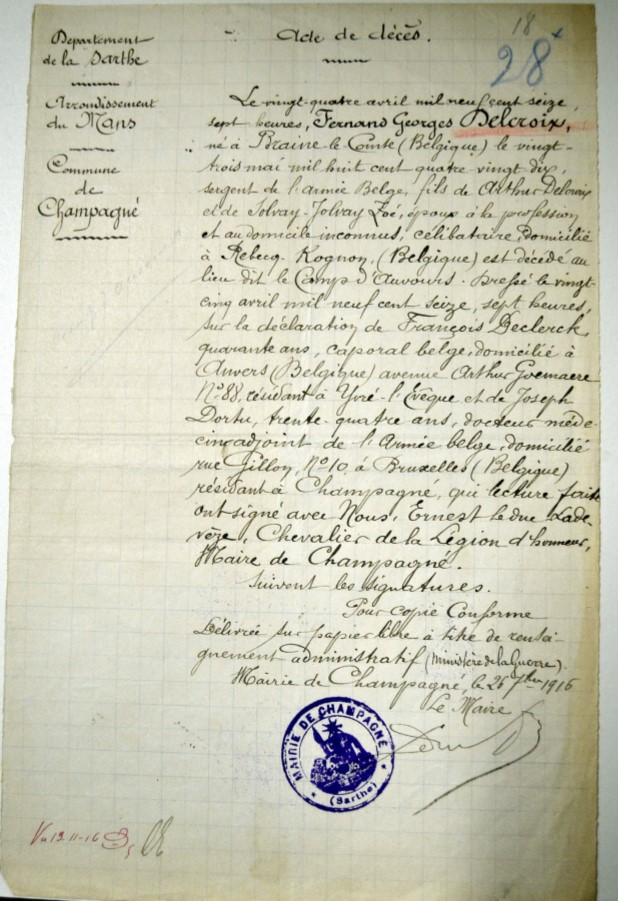 Département
de la Sarthe
Arrondissement
du Mans
Commune
de
Champagné
Acte de décès.
18
28
Le vingt-quatre avril mil neuf cent seize,
sept heures, Fernand Georges Delcroix,
né à Braine-le-Comte (Belgique) le vingt-
trois mai mil huit cent quatre vingt dix,
sergent de l'armée Belge, fils de Arthur Delcroix
et de Solvay-Jolvay Zoé, époux à la profession
et au domicile inconnus, célibataire, domicilié
à Rebecq-Rognon, (Belgique) est décédé au
lieu dit le Camp d'Auvours. Dressé le vingt-
cinq avril mil neuf cent seize, sept heures,
sur la déclaration de François Declerck,
quarante ans, caporal belge, domicilié à
Anvers (Belgique) avenue Arthur Goemaere
N° 88, résidant à Yvré-l'Evêque et de Joseph
Dortu, trente-quatre ans, docteur méde-
cin adjoint de l'Armée belge, domicilié
rue Gillon, N° 10, à Bruxelles (Belgique)
résidant à Champagné, qui lecture faite
ont signé avec Nous, Ernest le duc Lade-
vèze, Chevalier de la Légion d'honneur,
Maire de Champagné.
Suivent les signatures.
Pour copie Conforme
Délivrée sur papier libre à titre de rensei-
gnement administratif (Ministère de la Guerre).
Mairie de Champagné, le 26 7bre 1916
Le Maire
MAIRIE DE CHAMPAGNÉ
(Sarthe)
Vu 19-11-16